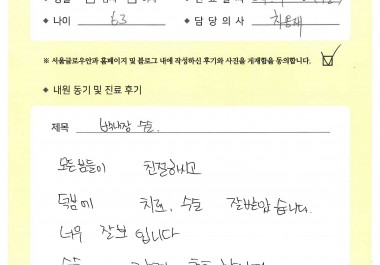 ◆ 나이 63 ◆ 담당의사
※ 서울글로우안과 홈페이지 및 블로그 내에 작성하신 후기와 사진을 게재함을 동의합니다.
◆ 내원 동기 및 진료 후기
제목 백내장 수술
모든분들이 친절하시고
덕분에 치료, 수술 잘받았습니다.
너무 잘보입니다